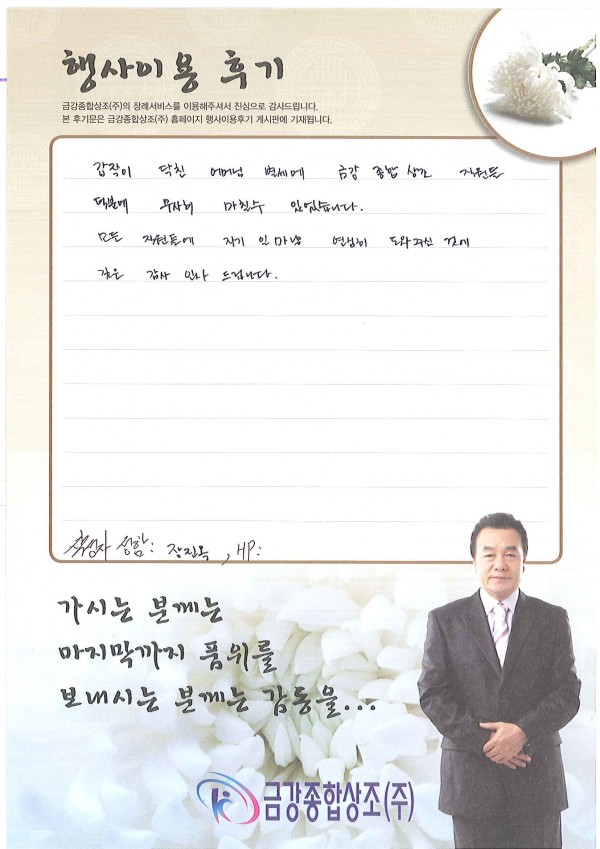 행사이용 후기
금강종합상조(주)의 장례서비스를 이용해주셔서 진심으로 감사드립니다.
본 후기문은 금강종합상조(주) 홈페이지 행사이용후기 게시판에 기재됩니다.
갑작이 닥친 어머님 병세에 금강 종합 상조 직원들
덕분에 무사히 마칠수 있었습니다.
모든 직원들에 자기 일 마냥 열심히 도와주신 것에
깊은 감사 인사 드립니다.
작성자 성함: 장진옥, HP:
가시는 분께는
마지막까지 품위를
보내시는 분께는 감동을...
금강종합상조(주)